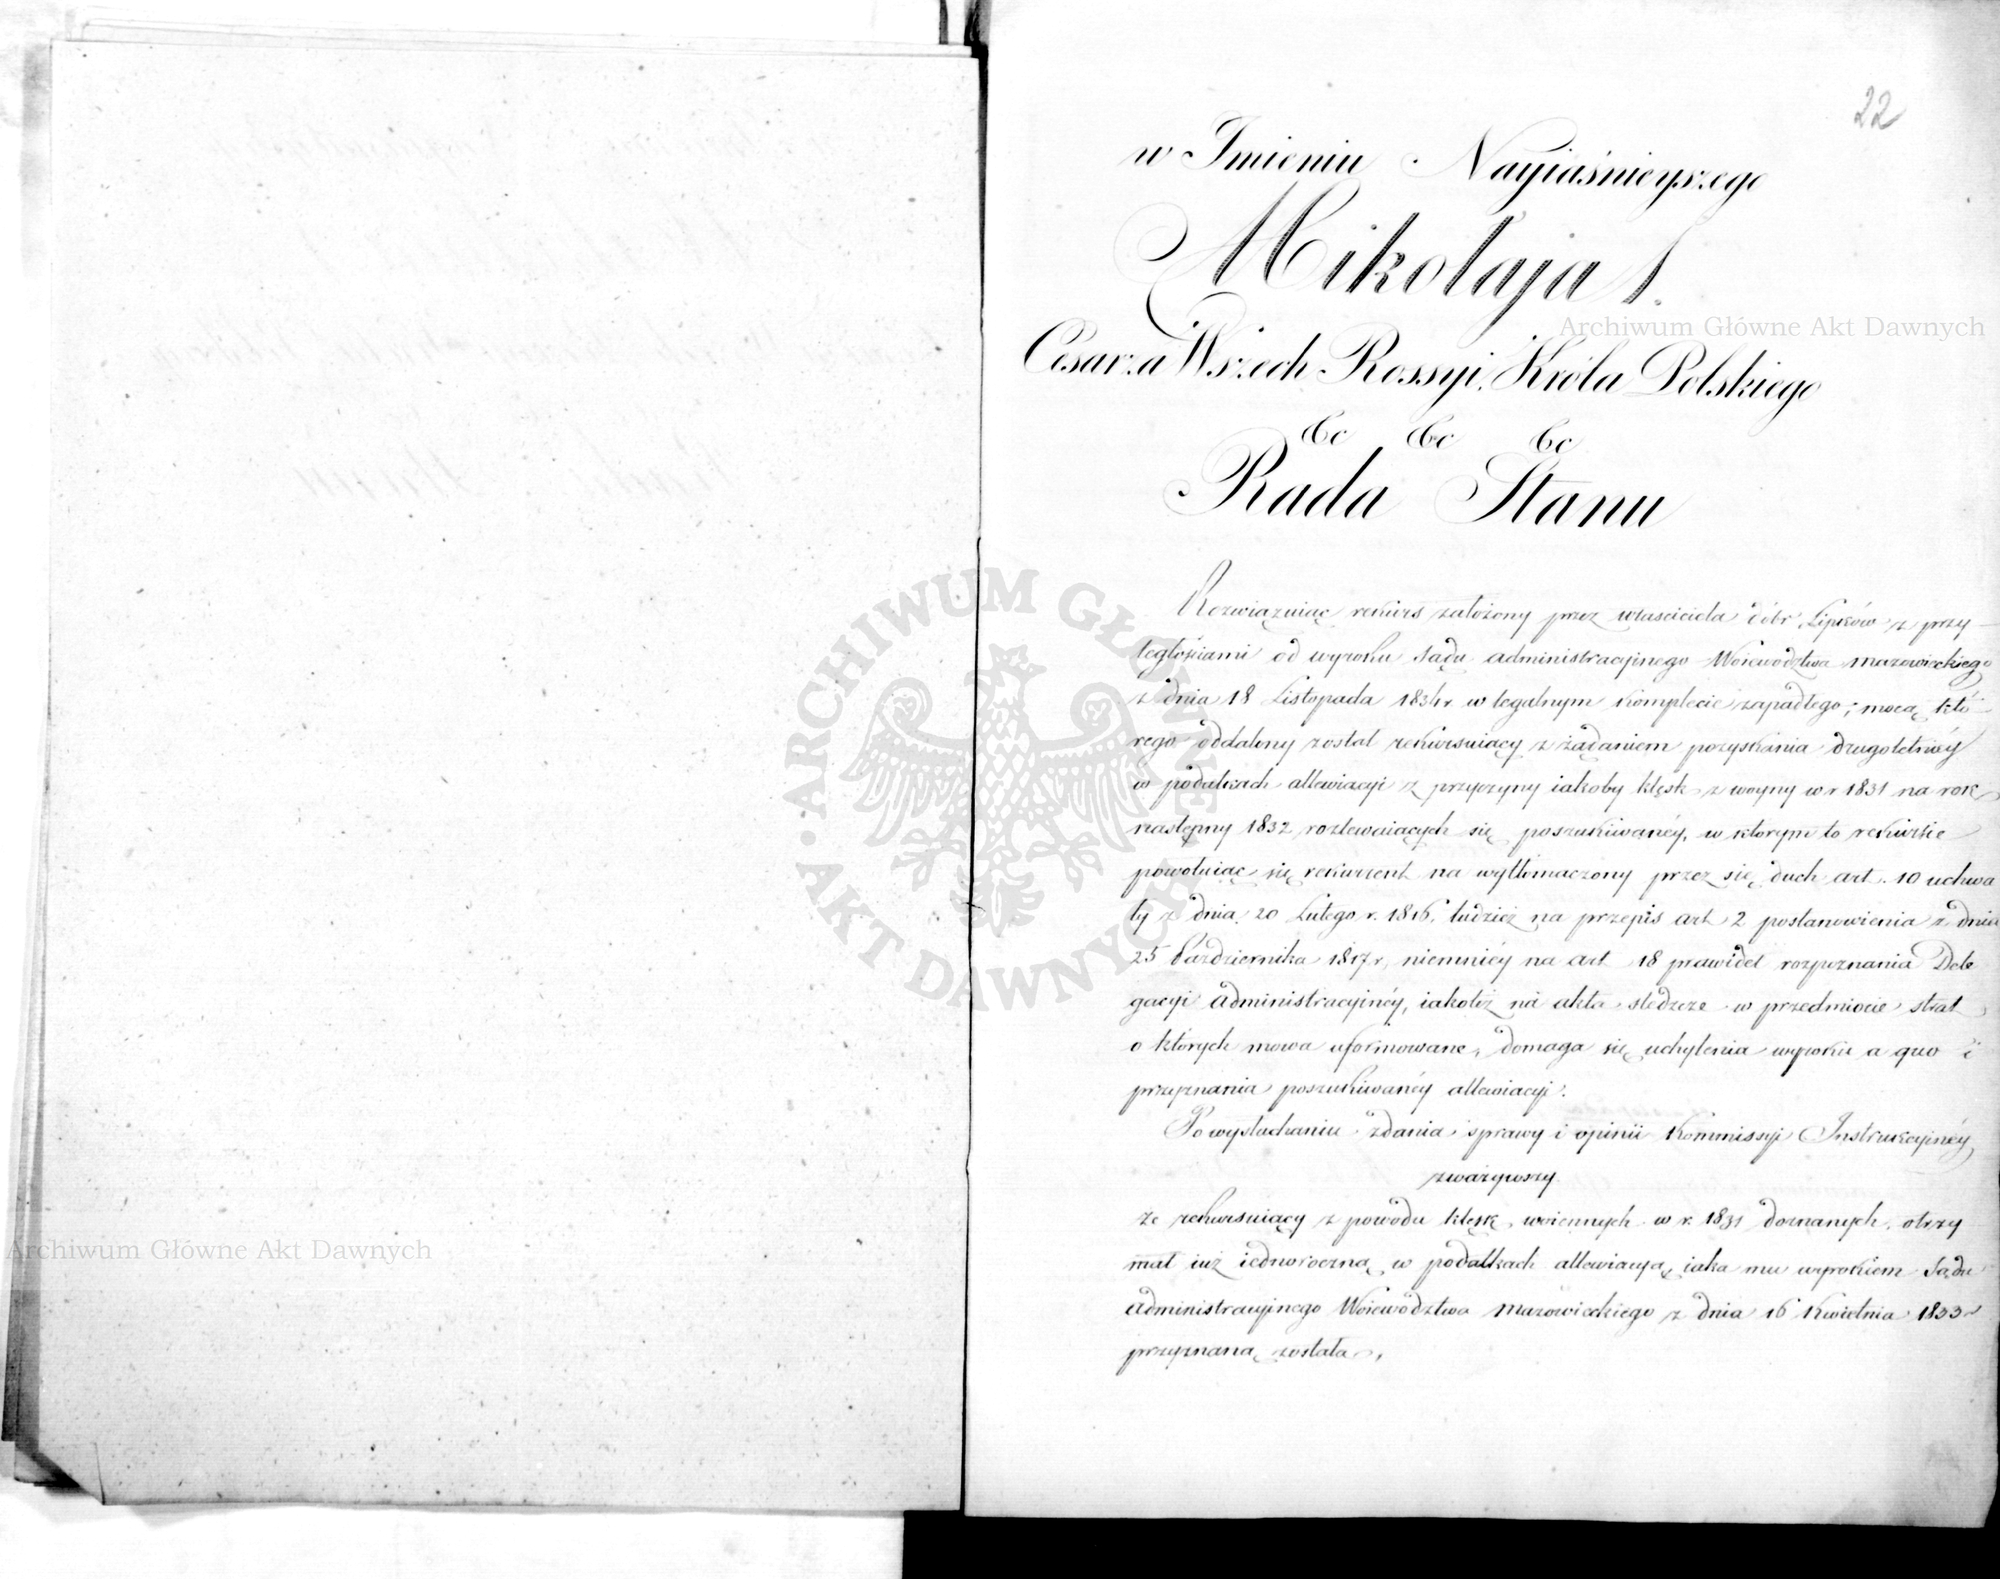 22
w Imieniu Nayiaśnieyszego
Mikołaja I.
Cesarza Wszech Rossyi, Króla Polskiego
&c &c &c
Rada Stanu
Rozwiązuiąc rekurs założony przez właściciela dóbr Lipków z przy-
ległościami od wyroku Sądu administracyinego Woiewództwa mazowieckiego
z dnia 18 Listopada 1834 r w legalnym komplecie zapadłego; mocą któ-
rego oddalony został rekursuiący z żądaniem pozyskania drugoletniéy
w podatkach allewiacyi z przyczyny iakoby klęsk z woyny w r 1831 na rok
następny 1832 rozlewaiących się poszukiwanéy, w którym to rekursie
powołuiąc się rekurrent na wytłomaczony przez się duch art. 10 uchwa
ły z dnia 20 Lutego r. 1816, tudzież na przepis art 2 postanowienia z dnia
25 Października 1817 r, niemniéy na art 18 prawideł rozpoznania Dele
gacyi administracyinéy, iakoliż na akta śledcze w przedmiocie strat
o których mowa uformowane, domaga się uchylenia wyroku a quo i
przyznania poszukiwanéy allewiacyi.
Po wysłuchaniu zdania sprawy i opinii Kommissyi Instrukcyinéy
zważywszy
że rekursuiący z powodu klęsk woiennych w r. 1831 doznanych, otrzy
mał iuż iednoroczną w podatkach allewiacyą, iaka mu wyrokiem Sądu
administracyinego Woiewództwa Mazowieckiego z dnia 16 Kwietnia 1833 r
przyznaną została,
Archiwum Główne Akt Dawnych
Archiwum Główne Akt Dawnych
ARCHIWUM GŁÓWNE · AKT DAWNYCH ·